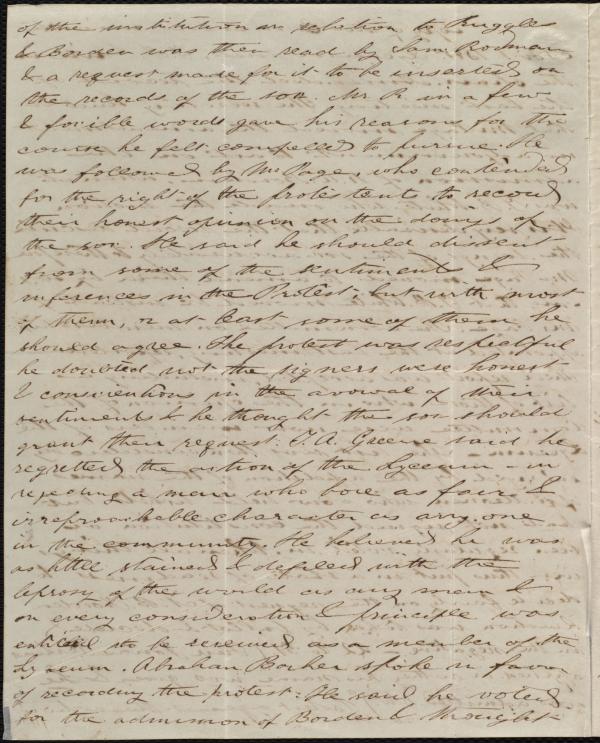 of the institution in relation to Ruggles
& Borden was then read by Sam Rodman
& a request made for it to be inserted on
the records of the soc. Mr R in a few
& forcible words gave his reasons for the
course he felt compelled to pursue. He
was followed by Mr Page, who contended
for the right of the protestents to record
their honest opinion on the doings of
the soc. He said he should dissent
from some of the sentiments &
inferences in the Protest, but with most
of them, or at least some of them he
should agree. The protest was respectful
he doubted not the signers were honest
& consientious in the avowal of their
sentiments & he thought the soc should
grant their request. T. A. Greene said he
regretted the action of the Lyceum - in
rejecting a man who bore as fair &
irreproachable character as any one
in the community. He believed he was
as little stained & defiled with the
leprosy of the world as any man &
on every consideration & principle was
entitled to be received as a member of the
Lyceum. Abraham Barker spoke in favor
of recording the protest: He said he voted
for the admission of Borden & thought